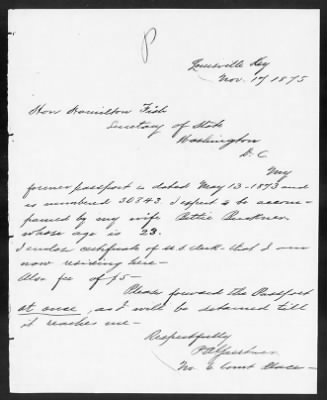 P
Louisville Ky
Nov. 17 1875
Hon Hamilton Fish
Secretary of State
Washington
D. C.
My
former passport is dated May 13 - 1873 and
is numbered 30843. I expect to be accom-
panied by my wife Pattie
whose age is 23.
I enclose certificate of U.S. Clerk - that I am
now residing here -
Also fee of $5 -
Please forward the Passport
at once, as I will be detained till
it reaches me -
Respectfully
No. Court Place -